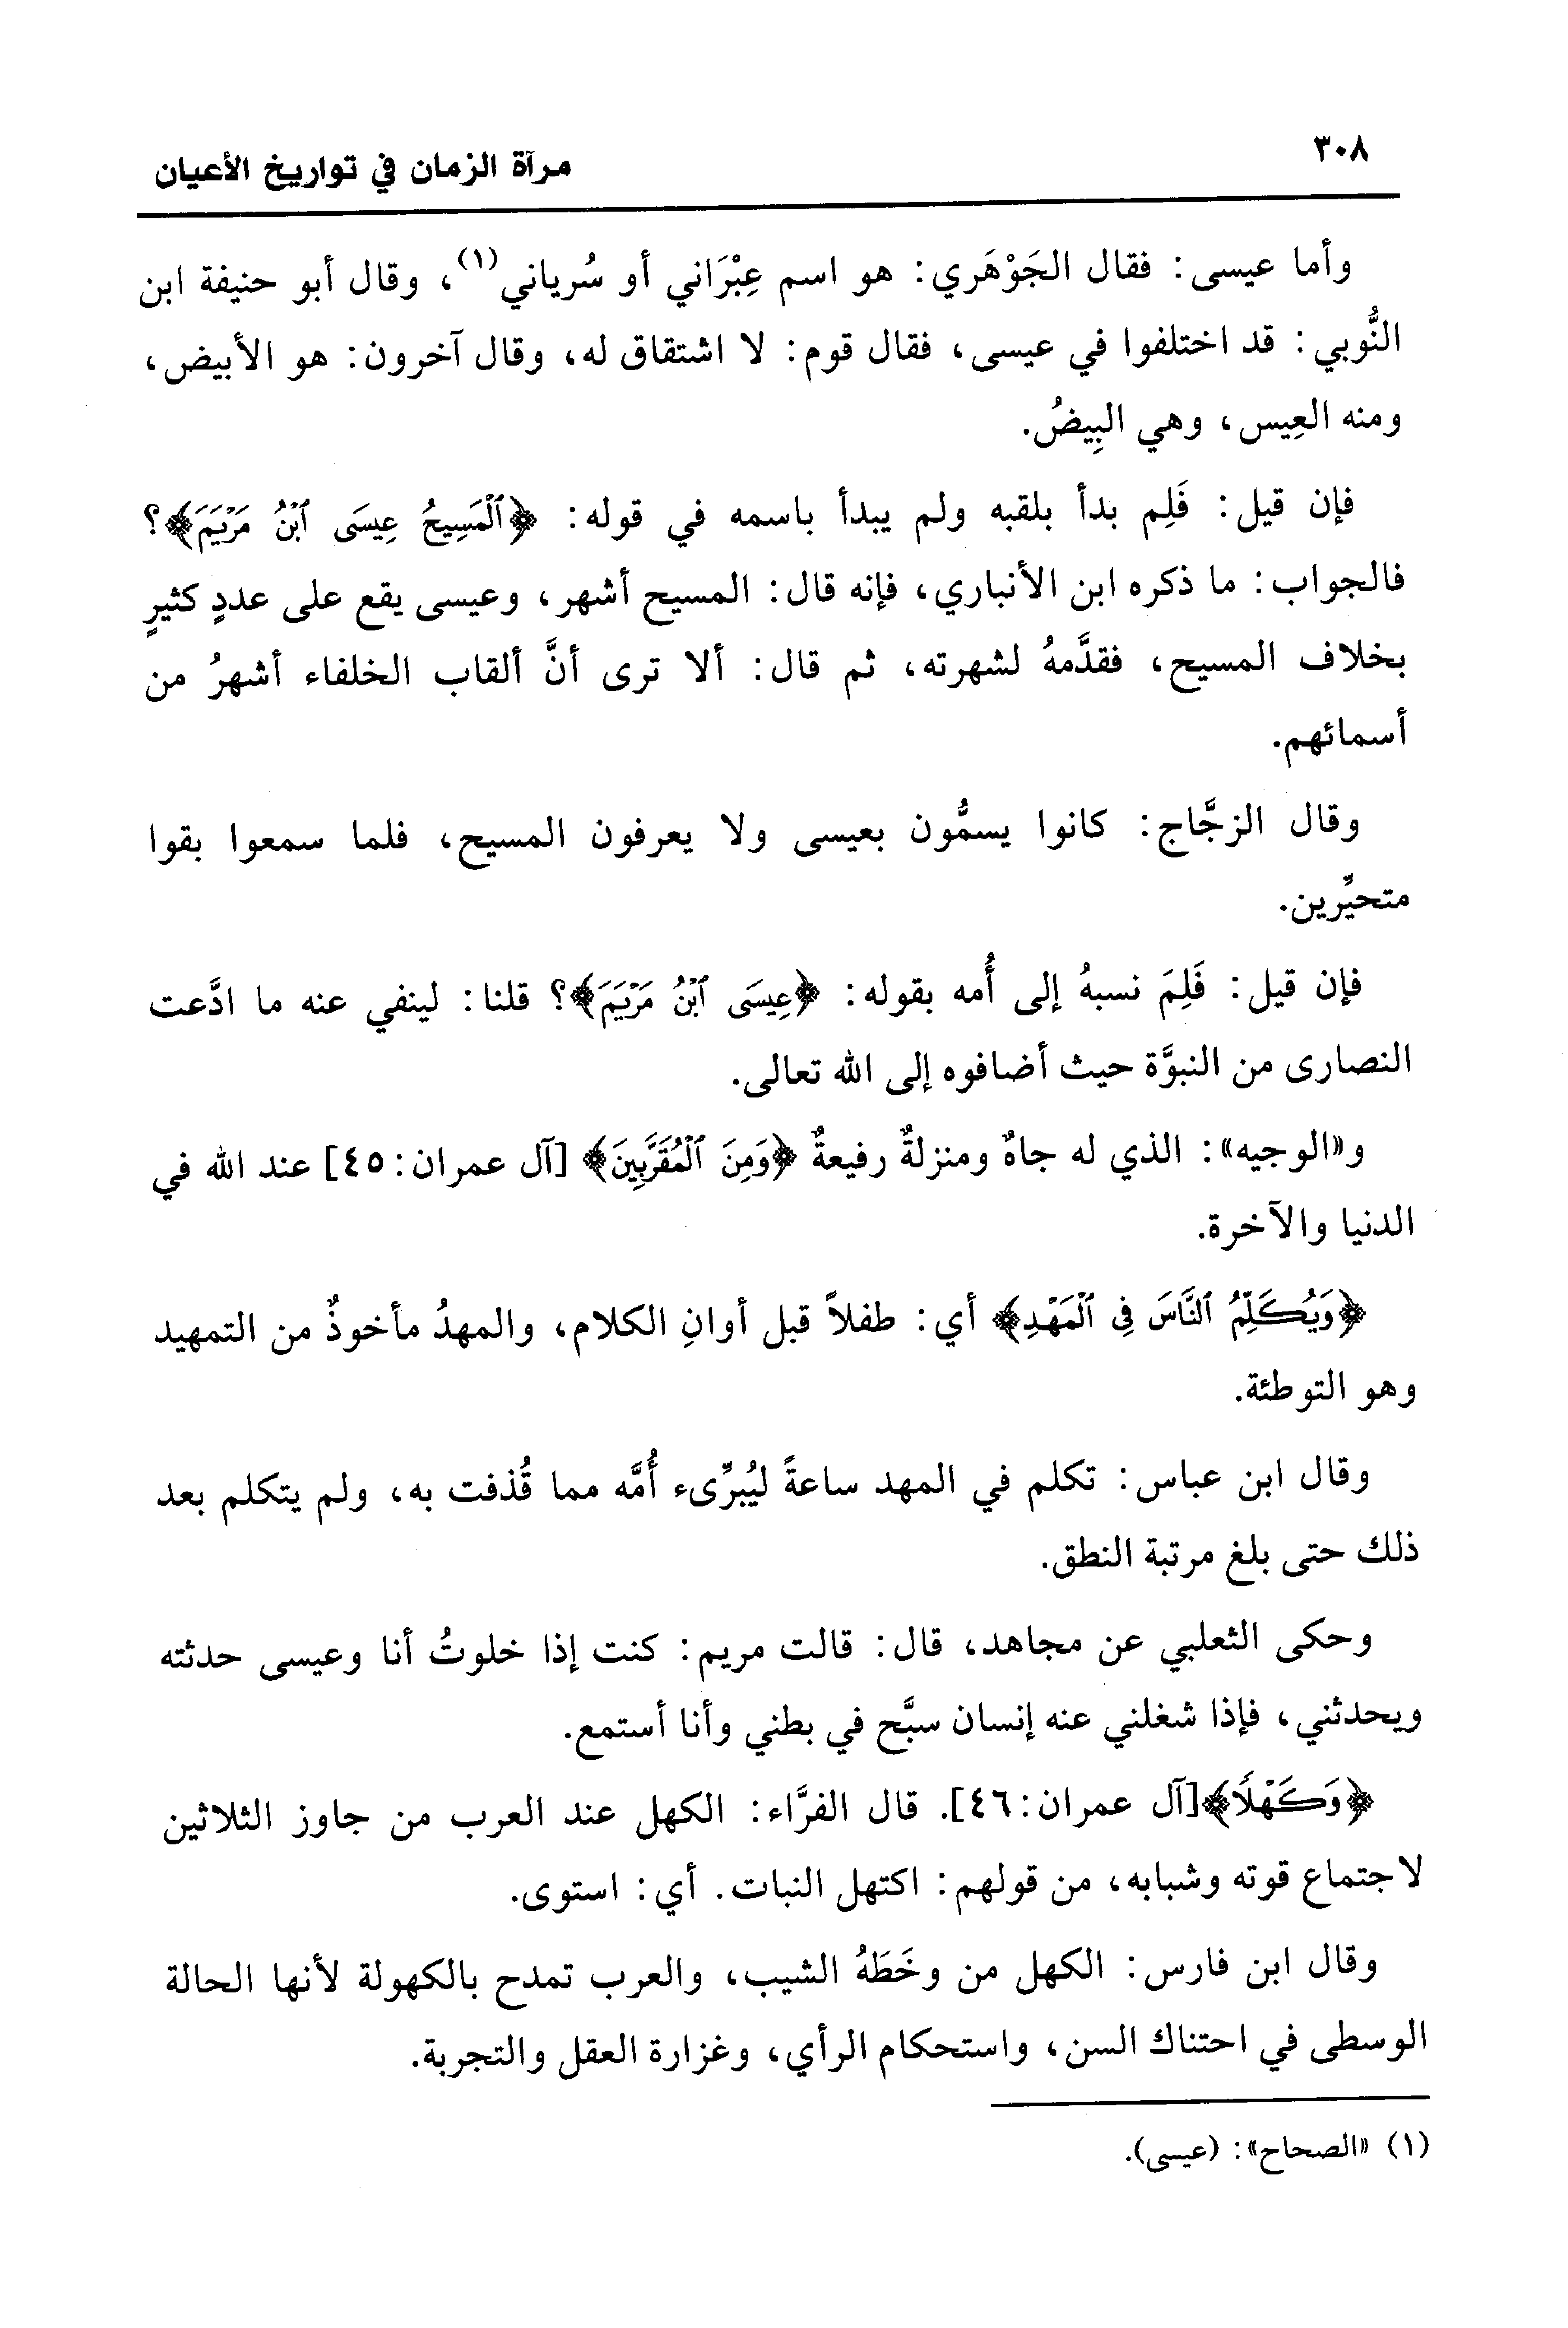 ٣٠٨
مرآة الزمان في تواريخ الأعيان
وأما عيسى: فقال الجَوْهَري: هو اسم عِبْرَاني أو سُرياني(١)، وقال أبو حنيفة ابن
النُّوبي: قد اختلفوا في عيسى، فقال قوم: لا اشتقاق له، وقال آخرون: هو الأبيض،
ومنه العِيس، وهي البِيضُ.
فإن قيل: فَلِم بدأ بلقبه ولم يبدأ باسمه في قوله: ﴿ٱلْمَسِيحُ عِيسَى ٱبْنُ مَرْيَمَ﴾؟
فالجواب: ما ذكره ابن الأنباري، فإنه قال: المسيح أشهر، وعيسى يقع على عددٍ كثيرٍ
بخلاف المسيح، فقدَّمهُ لشهرته، ثم قال: ألا ترى أنَّ ألقاب الخلفاء أشهرُ من
أسمائهم.
وقال الزجَّاج: كانوا يسمُّون بعيسى ولا يعرفون المسيح، فلما سمعوا بقوا
متحيِّرين.
فإن قيل: فَلِمَ نسبهُ إلى أُمه بقوله: ﴿عِيسَى ٱبْنُ مَرْيَمَ﴾؟ قلنا: لينفي عنه ما ادَّعت
النصارى من النبوَّة حيث أضافوه إلى الله تعالى.
و«الوجيه»: الذي له جاهٌ ومنزلةٌ رفيعةٌ ﴿وَمِنَ ٱلْمُقَرَّبِينَ﴾ [آل عمران: ٤٥] عند الله في
الدنيا والآخرة.
﴿وَيُكَلِّمُ ٱلنَّاسَ فِى ٱلْمَهْدِ﴾ أي: طفلاً قبل أوانِ الكلام، والمهدُ مأخوذٌ من التمهيد
وهو التوطئة.
وقال ابن عباس: تكلم في المهد ساعةً ليُبرِّىء أُمَّه مما قُذفت به، ولم يتكلم بعد
ذلك حتى بلغ مرتبة النطق.
وحكى الثعلبي عن مجاهد، قال: قالت مريم: كنت إذا خلوتُ أنا وعيسى حدثته
ويحدثني، فإذا شغلني عنه إنسان سبَّح في بطني وأنا أستمع.
﴿وَكَهْلًا﴾[آل عمران: ٤٦]. قال الفرَّاء: الكهل عند العرب من جاوز الثلاثين
لاجتماع قوته وشبابه، من قولهم: اكتهل النبات. أي: استوى.
وقال ابن فارس: الكهل من وخَطَهُ الشيب، والعرب تمدح بالكهولة لأنها الحالة
الوسطى في احتناك السن، واستحكام الرأي، وغزارة العقل والتجربة.
(١) «الصحاح»: (عيسى).